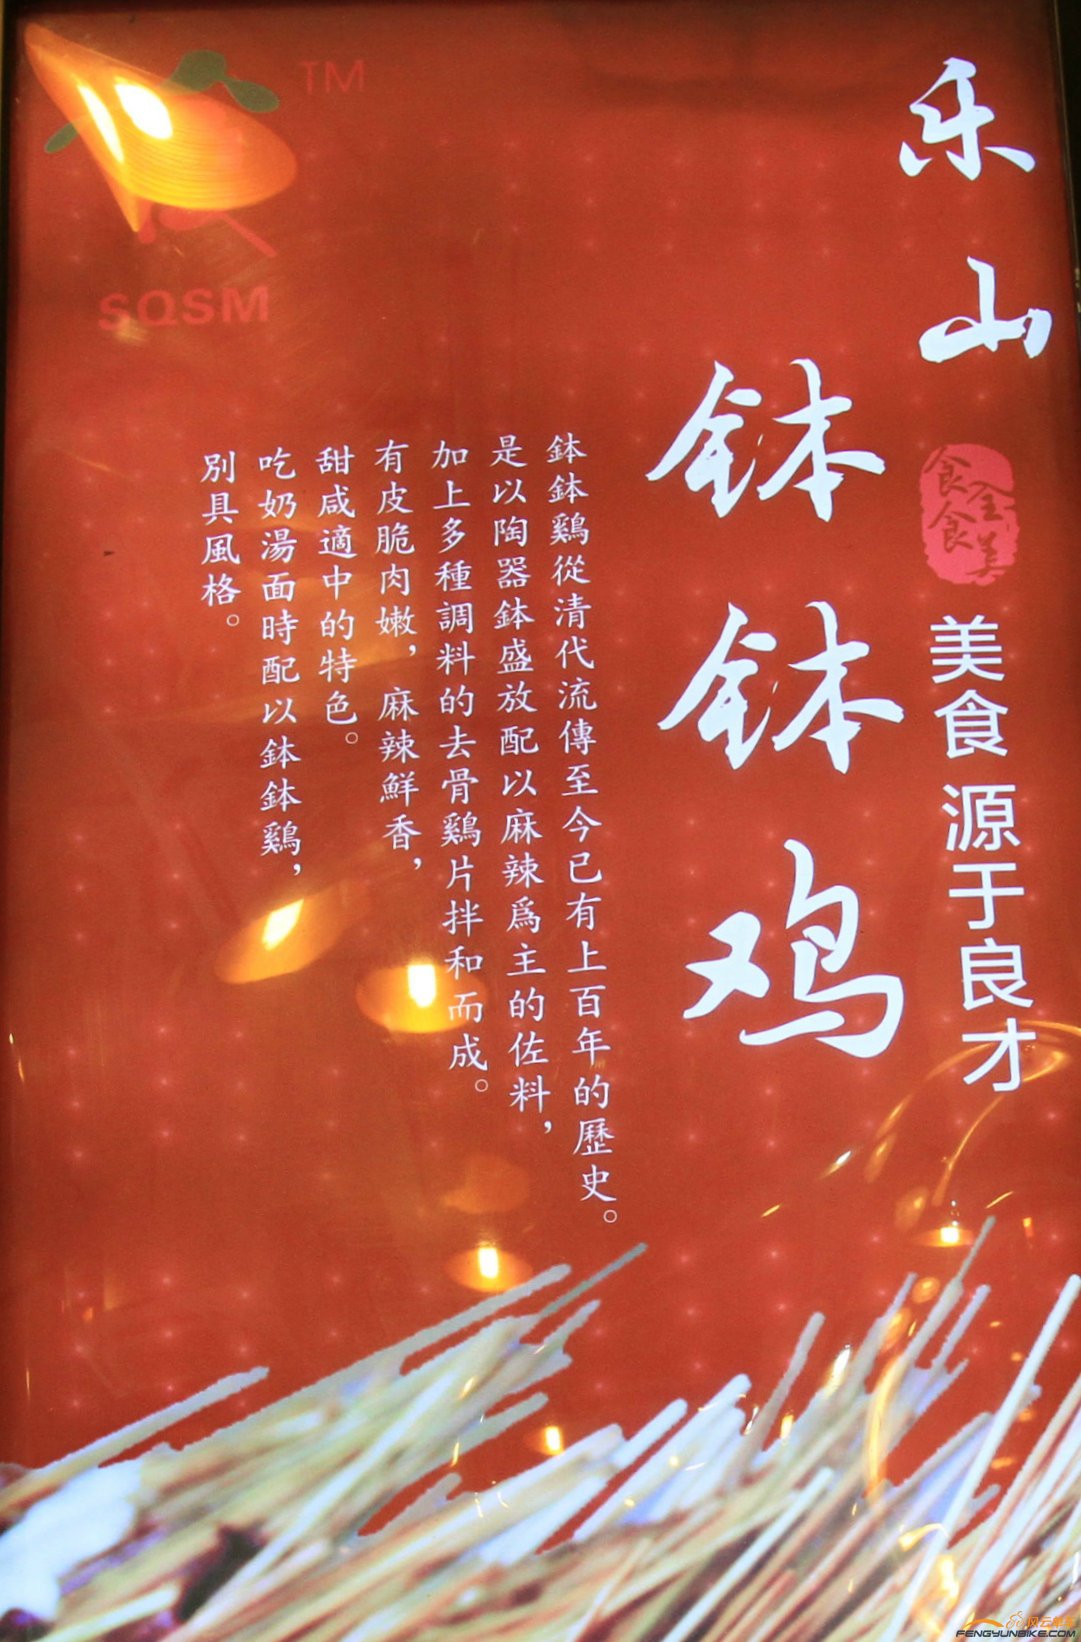 乐山
钵钵鸡
食全食美
美食 源于良才
鉢鉢鷄從清代流傳至今已有上百年的歷史。
是以陶器鉢盛放配以麻辣爲主的佐料，
加上多種調料的去骨鷄片拌和而成。
有皮脆肉嫩，麻辣鮮香，
甜咸適中的特色。
吃奶湯面時配以鉢鉢鷄，
別具風格。
TM
SQSM
风云单车
FENGYUNBIKE.COM